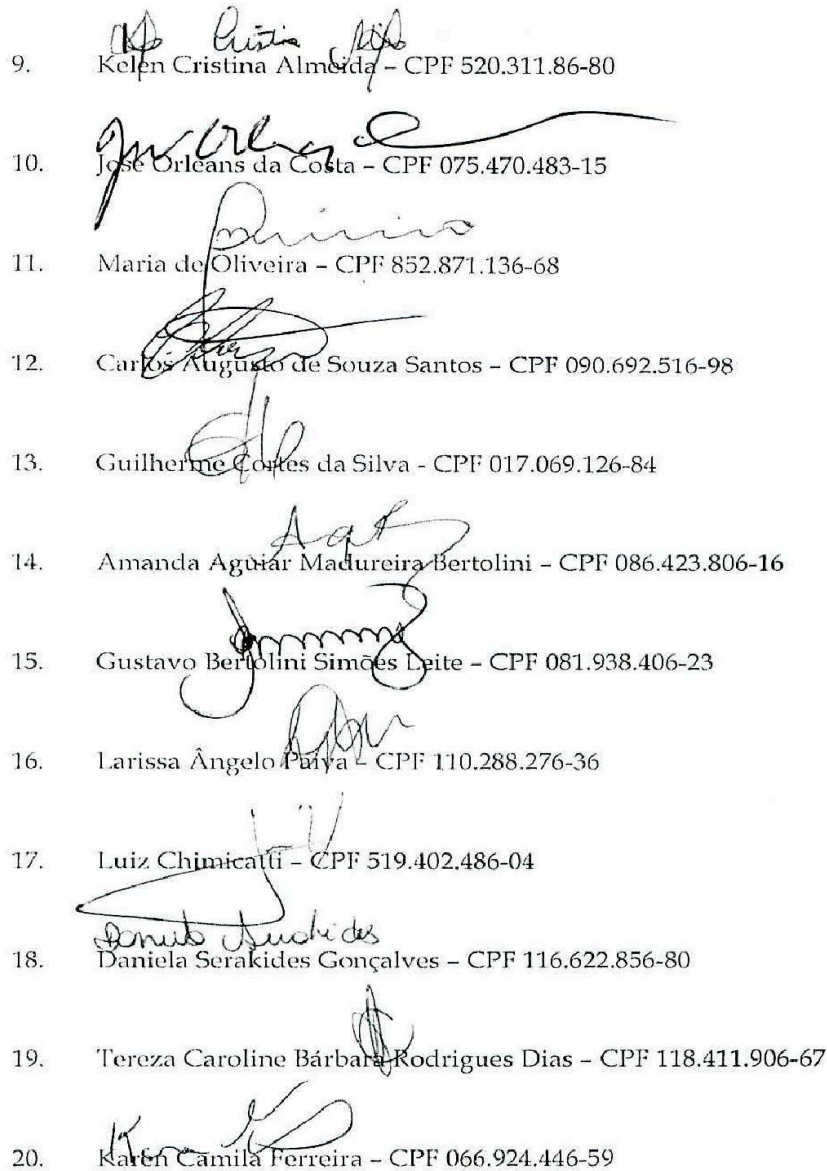 9. Kelen Cristina Almeida – CPF 520.311.86-80
10. José Orleans da Costa – CPF 075.470.483-15
11. Maria de Oliveira – CPF 852.871.136-68
12. Carlos Augusto de Souza Santos – CPF 090.692.516-98
13. Guilherme Cortes da Silva - CPF 017.069.126-84
14. Amanda Aguiar Madureira Bertolini – CPF 086.423.806-16
15. Gustavo Bertolini Simões Leite – CPF 081.938.406-23
16. Larissa Ângelo Paiva – CPF 110.288.276-36
17. Luiz Chimicatti – CPF 519.402.486-04
18. Daniela Serakides Gonçalves – CPF 116.622.856-80
19. Tereza Caroline Bárbara Rodrigues Dias – CPF 118.411.906-67
20. Karen Camila Ferreira – CPF 066.924.446-59